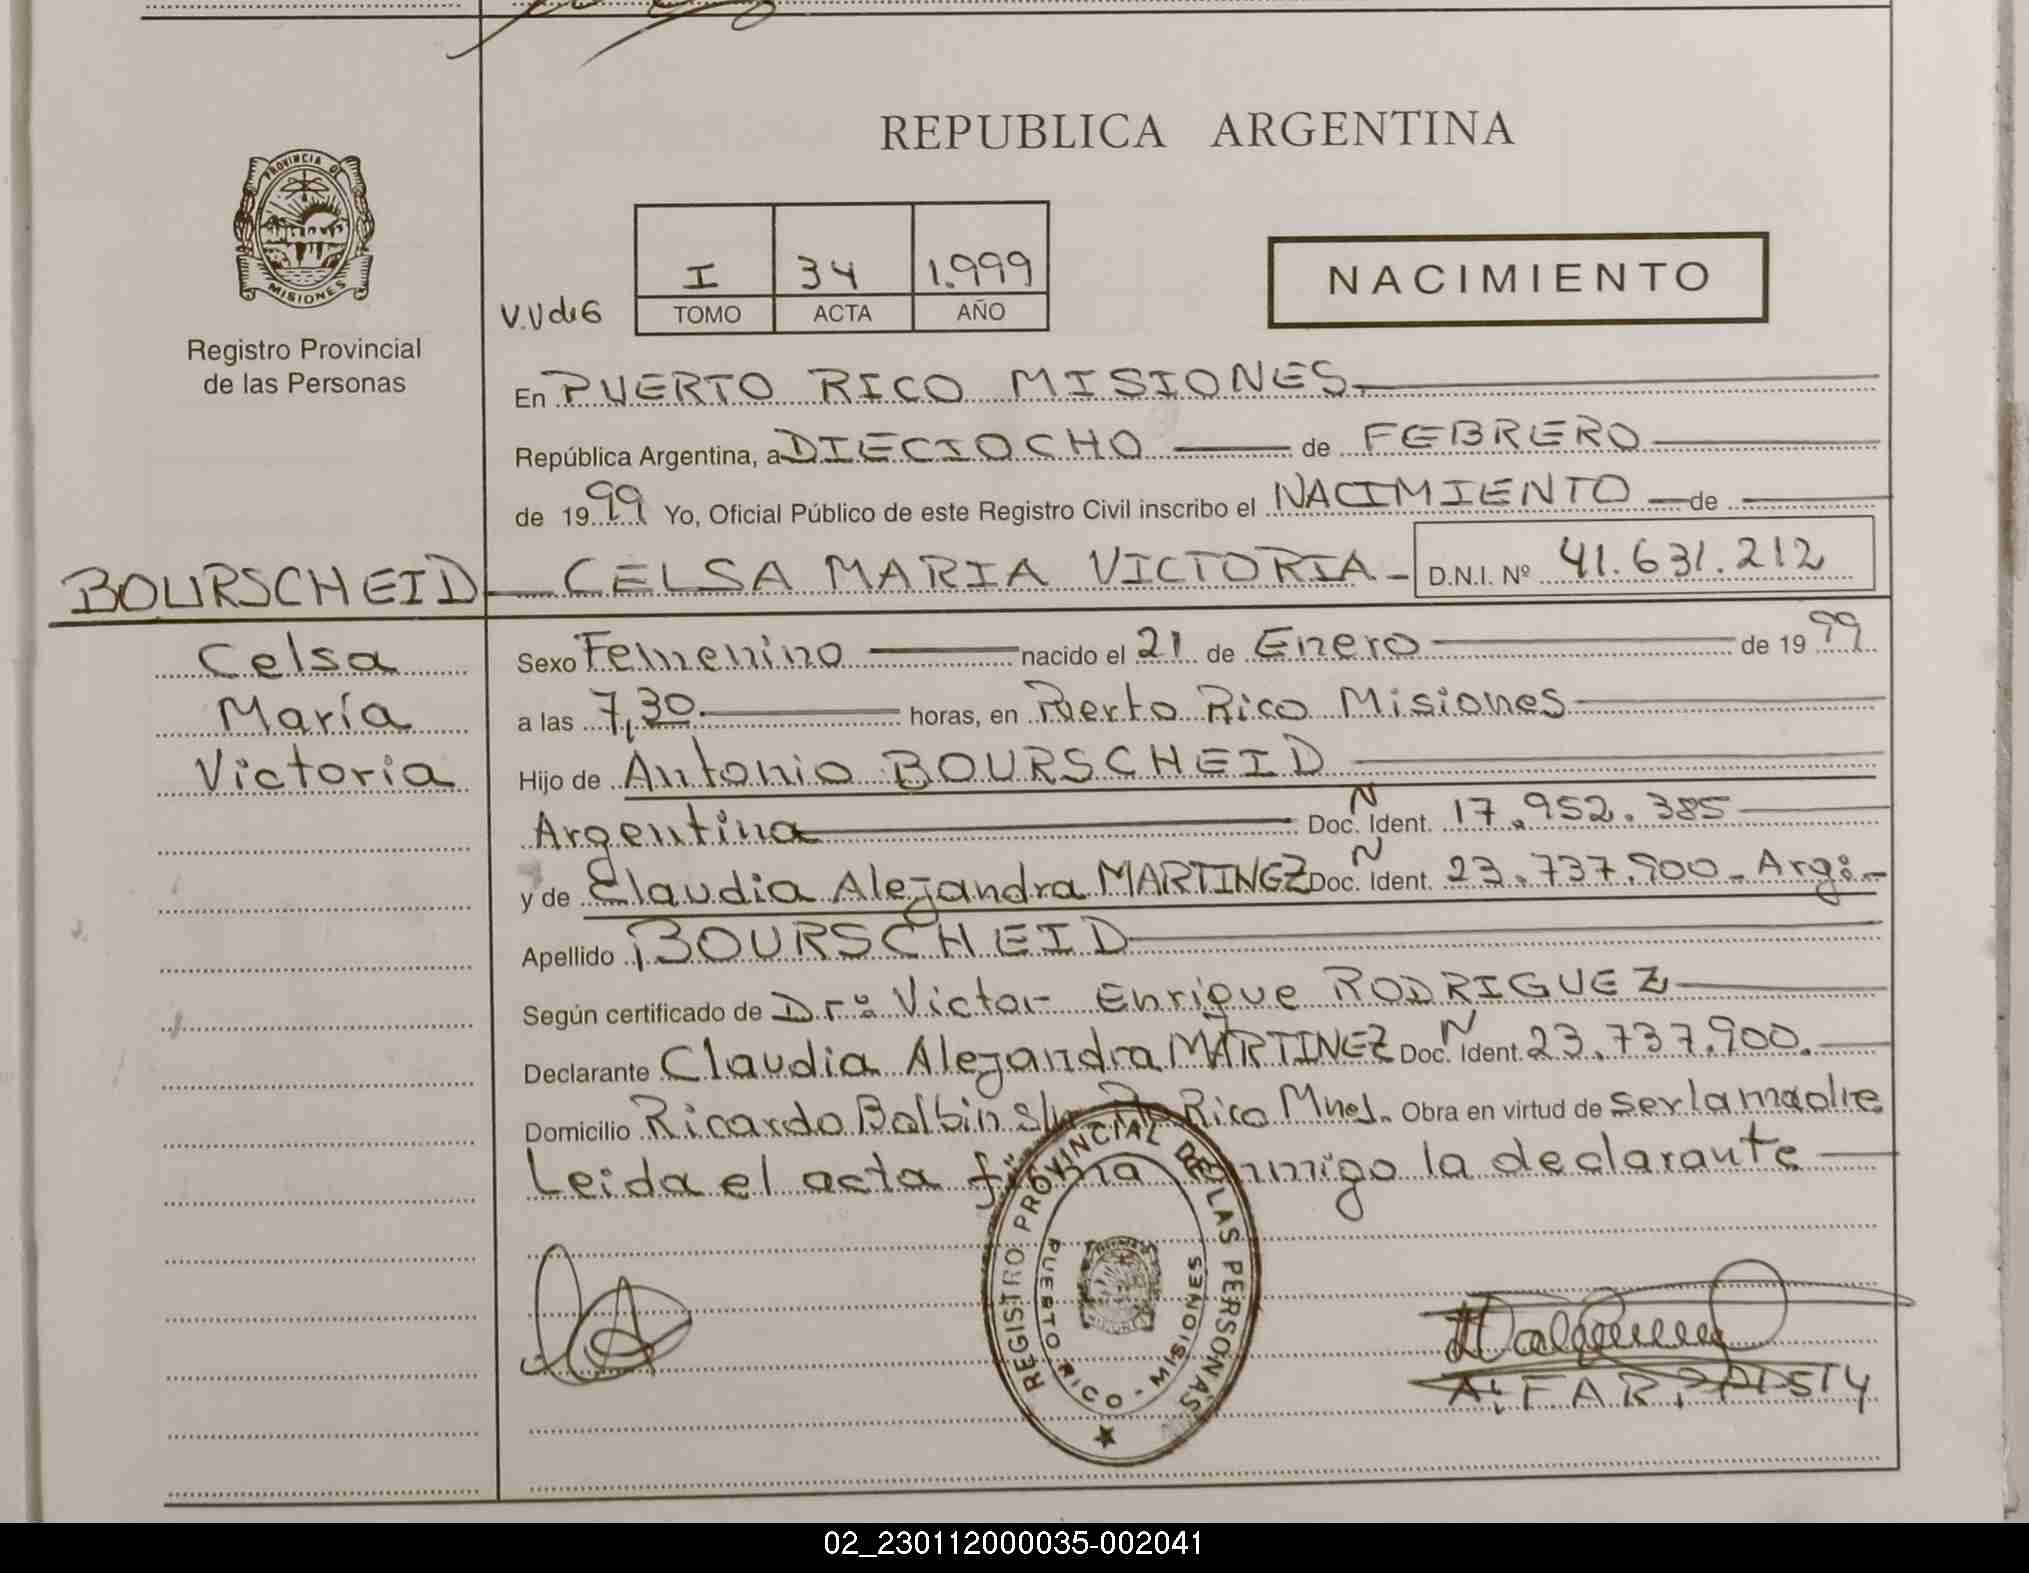 REPUBLICA ARGENTINA
PROVINCIA DE
MISIONES
Registro Provincial
de las Personas
I 34 1.999
TOMO ACTA AÑO
NACIMIENTO
En PUERTO RICO MISIONES
República Argentina, a DIECIOCHO de FEBRERO
de 1999 Yo, Oficial Público de este Registro Civil inscribo el NACIMIENTO de
BOURSCHEID CELSA MARIA VICTORIA - D.N.I. Nº 41.631.212
Celsa
María
Victoria
Sexo Femenino nacido el 21 de Enero de 1999
a las 7,30 horas, en Puerto Rico Misiones
Hijo de Antonio BOURSCHEID
Argentina Doc. N Ident. 17.952.385
y de Claudia Alejandra MARTINEZ Doc. N Ident. 23.737.900 - Arg.-
Apellido BOURSCHEID
Según certificado de Dr. Victor Enrique RODRIGUEZ
Declarante Claudia Alejandra MARTINEZ Doc. N Ident. 23.737.900.
Domicilio Ricardo Balbin s/n Rico Mnes. Obra en virtud de ser la madre
Leida el acta firma conmigo la declarante
REGISTRO PROVINCIAL DE LAS PERSONAS
PUERTO RICO - MISIONES
02_230112000035-002041